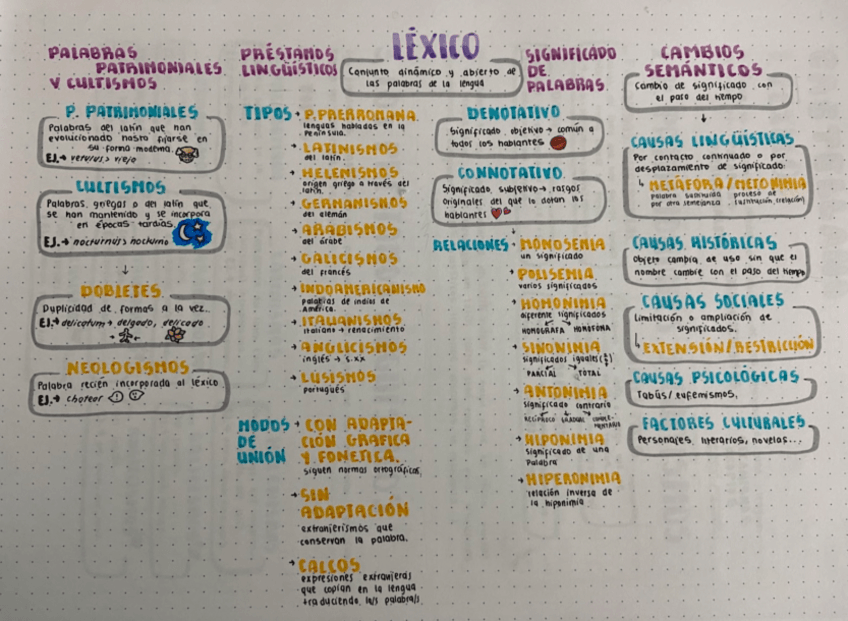 LÉXICO
Conjunto dinámico y abierto de
las palabras de la lengua
PALABRAS
PATRIMONIALES
Y CULTISMOS
P. PATRIMONIALES
Palabras del latín que han
evolucionado hasta fijarse en
su forma moderna.
EJ.→ vetulus > viejo
CULTISMOS
Palabras griegas o del latín que
se han mantenido y se incorpora
en épocas tardías.
EJ.→ nocturnus > nocturno
↓
DOBLETES
Duplicidad de formas a la vez.
EJ.→ delicatum → delgado, delicado
NEOLOGISMOS
Palabra recién incorporada al léxico
EJ.→ chatear
PRÉSTAMOS
LINGÜÍSTICOS
TIPOS → P. PRERROMANA
lenguas habladas en la
Península.
→ LATINISMOS
del latín.
→ HELENISMOS
origen griego a través del
latín.
→ GERMANISMOS
del alemán
→ ARABISMOS
del árabe
→ GALICISMOS
del francés
→ INDOAMERICANISMO
palabras de indias de
América.
→ ITALIANISMOS
italiano → renacimiento
→ ANGLICISMOS
inglés → s.XX
→ LUSISMOS
portugués
MODOS
DE
UNIÓN
→ CON ADAPTA-
CIÓN GRÁFICA
Y FONÉTICA.
siguen normas ortográficas
→ SIN
ADAPTACIÓN
extranjerismos que
conservan la palabra.
→ CALCOS
expresiones extranjeras
que copian en la lengua
traduciendo la/s palabra/s
SIGNIFICADO
DE
PALABRAS
DENOTATIVO
Significado objetivo → común a
todos los hablantes
CONNOTATIVO
Significado subjetivo → rasgos
originales del que lo dotan los
hablantes
RELACIONES → MONOSEMIA
un significado
→ POLISEMIA
varios significados
→ HOMONIMIA
diferente significados
HOMÓGRAFA HOMÓFONA
→ SINONIMIA
significados iguales
PARCIAL TOTAL
→ ANTONIMIA
significado contrario
RECÍPROCO GRADUAL COMPLE-
MENTARIO
→ HIPONIMIA
significado de una
Palabra
→ HIPERONIMIA
relación inversa de
la hiponimia
CAMBIOS
SEMÁNTICOS
Cambio de significado con
el paso del tiempo
↓
CAUSAS LINGÜÍSTICAS
Por contacto continuado o por
desplazamiento de significado:
↳ METÁFORA / METONIMIA
palabra sustituida proceso de
por otra semejanza (sustitución, relación)
CAUSAS HISTÓRICAS
Objeto cambia de uso sin que el
nombre cambie con el paso del tiempo
CAUSAS SOCIALES
Limitación o ampliación de
significados.
↳ EXTENSIÓN/RESTRICCIÓN
CAUSAS PSICOLÓGICAS
Tabús/eufemismos.
FACTORES CULTURALES
Personajes literarios, novelas...